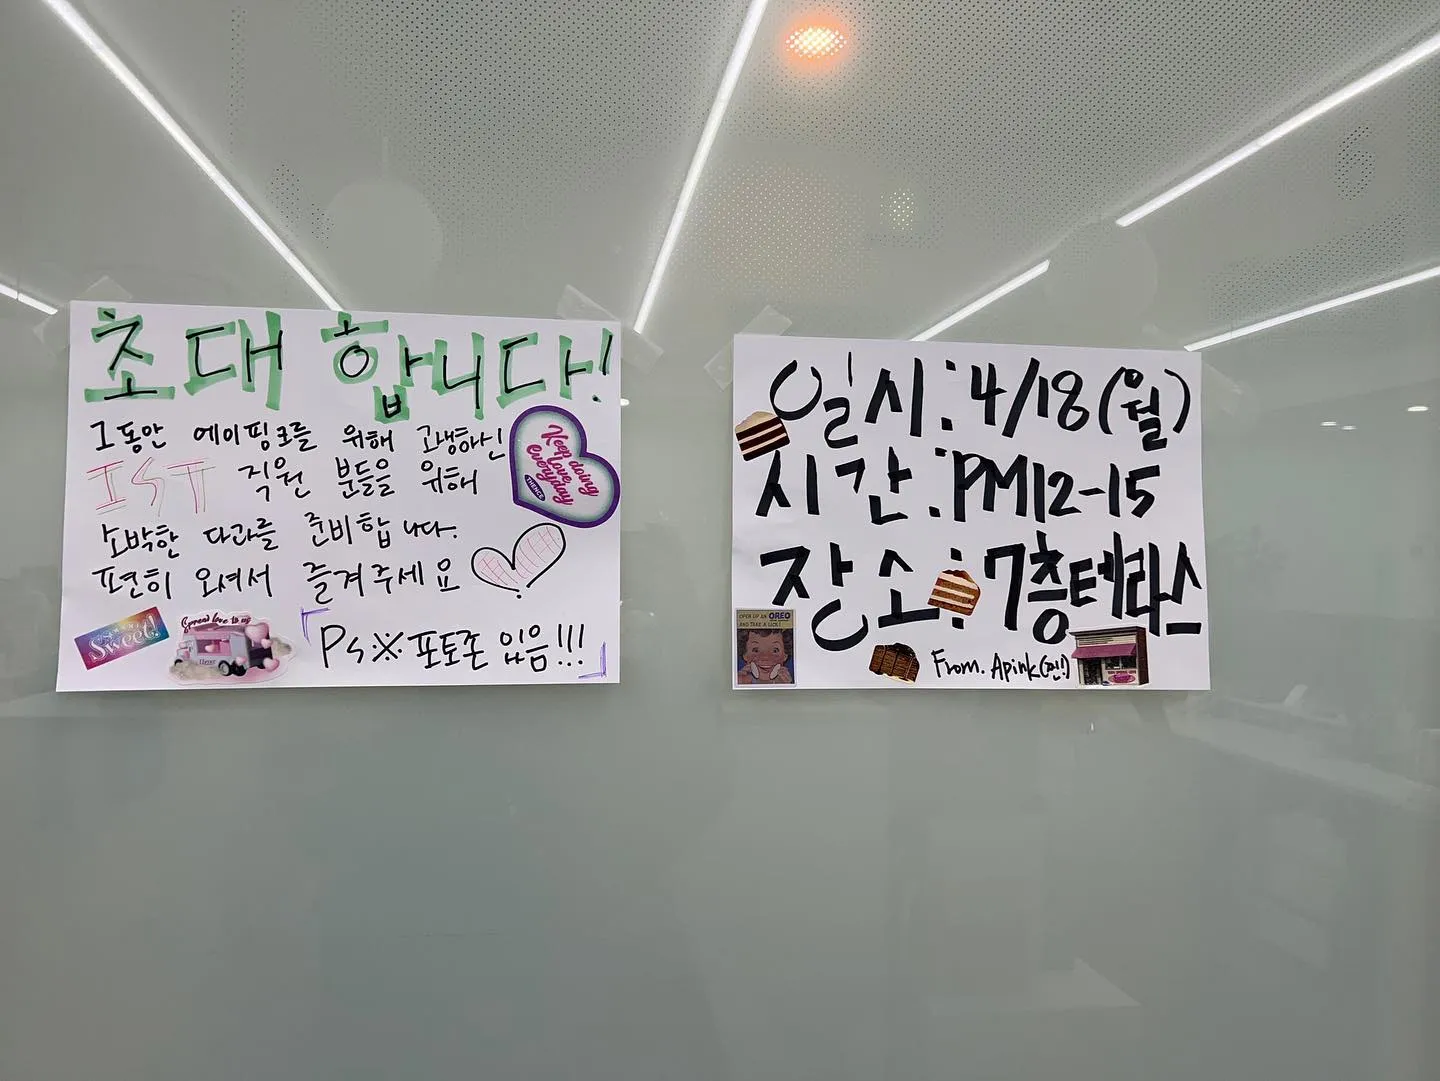 초대합니다!
그동안 에이핑크를 위해 고생하신
IST 직원 분들을 위해
소박한 다과를 준비합니다.
편히 오셔서 즐겨주세요
Keep doing
love
everyday
Sweet!
Spread love to us
Ps※포토존 있음!!!
일시:4/18(월)
시간:PM12-15
장소:7층테라스
OPEN UP AN OREO
AND TAKE A LICK!
From. Apink